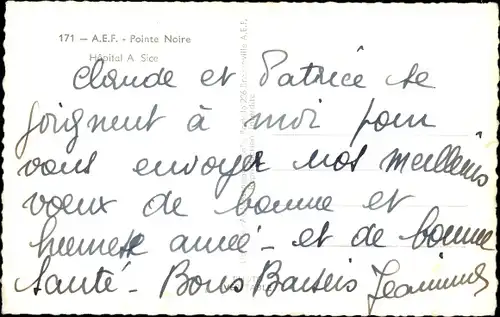 171 — A.E.F. - Pointe Noire
Hôpital A. Sice
Claude et Patrice se
joignent à moi pour
vous envoyer nos meilleurs
voeux de bonne et
heureuse année - et de bonne
Santé - Bons Baisers Jeannine